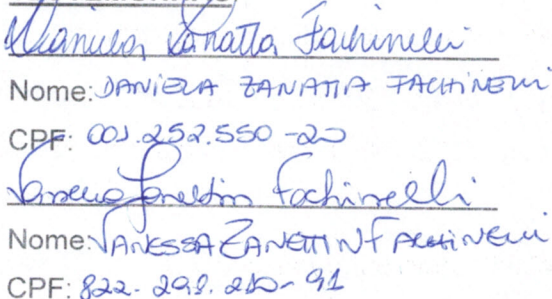 Daniela Zanatta Fachinelli
Nome: DANIELA ZANATTA FACHINELLI
CPF: 001.252.550-20
Vanessa Zanettin Fachinelli
Nome: VANESSA ZANETTIN FACHINELLI
CPF: 822.291.210-91